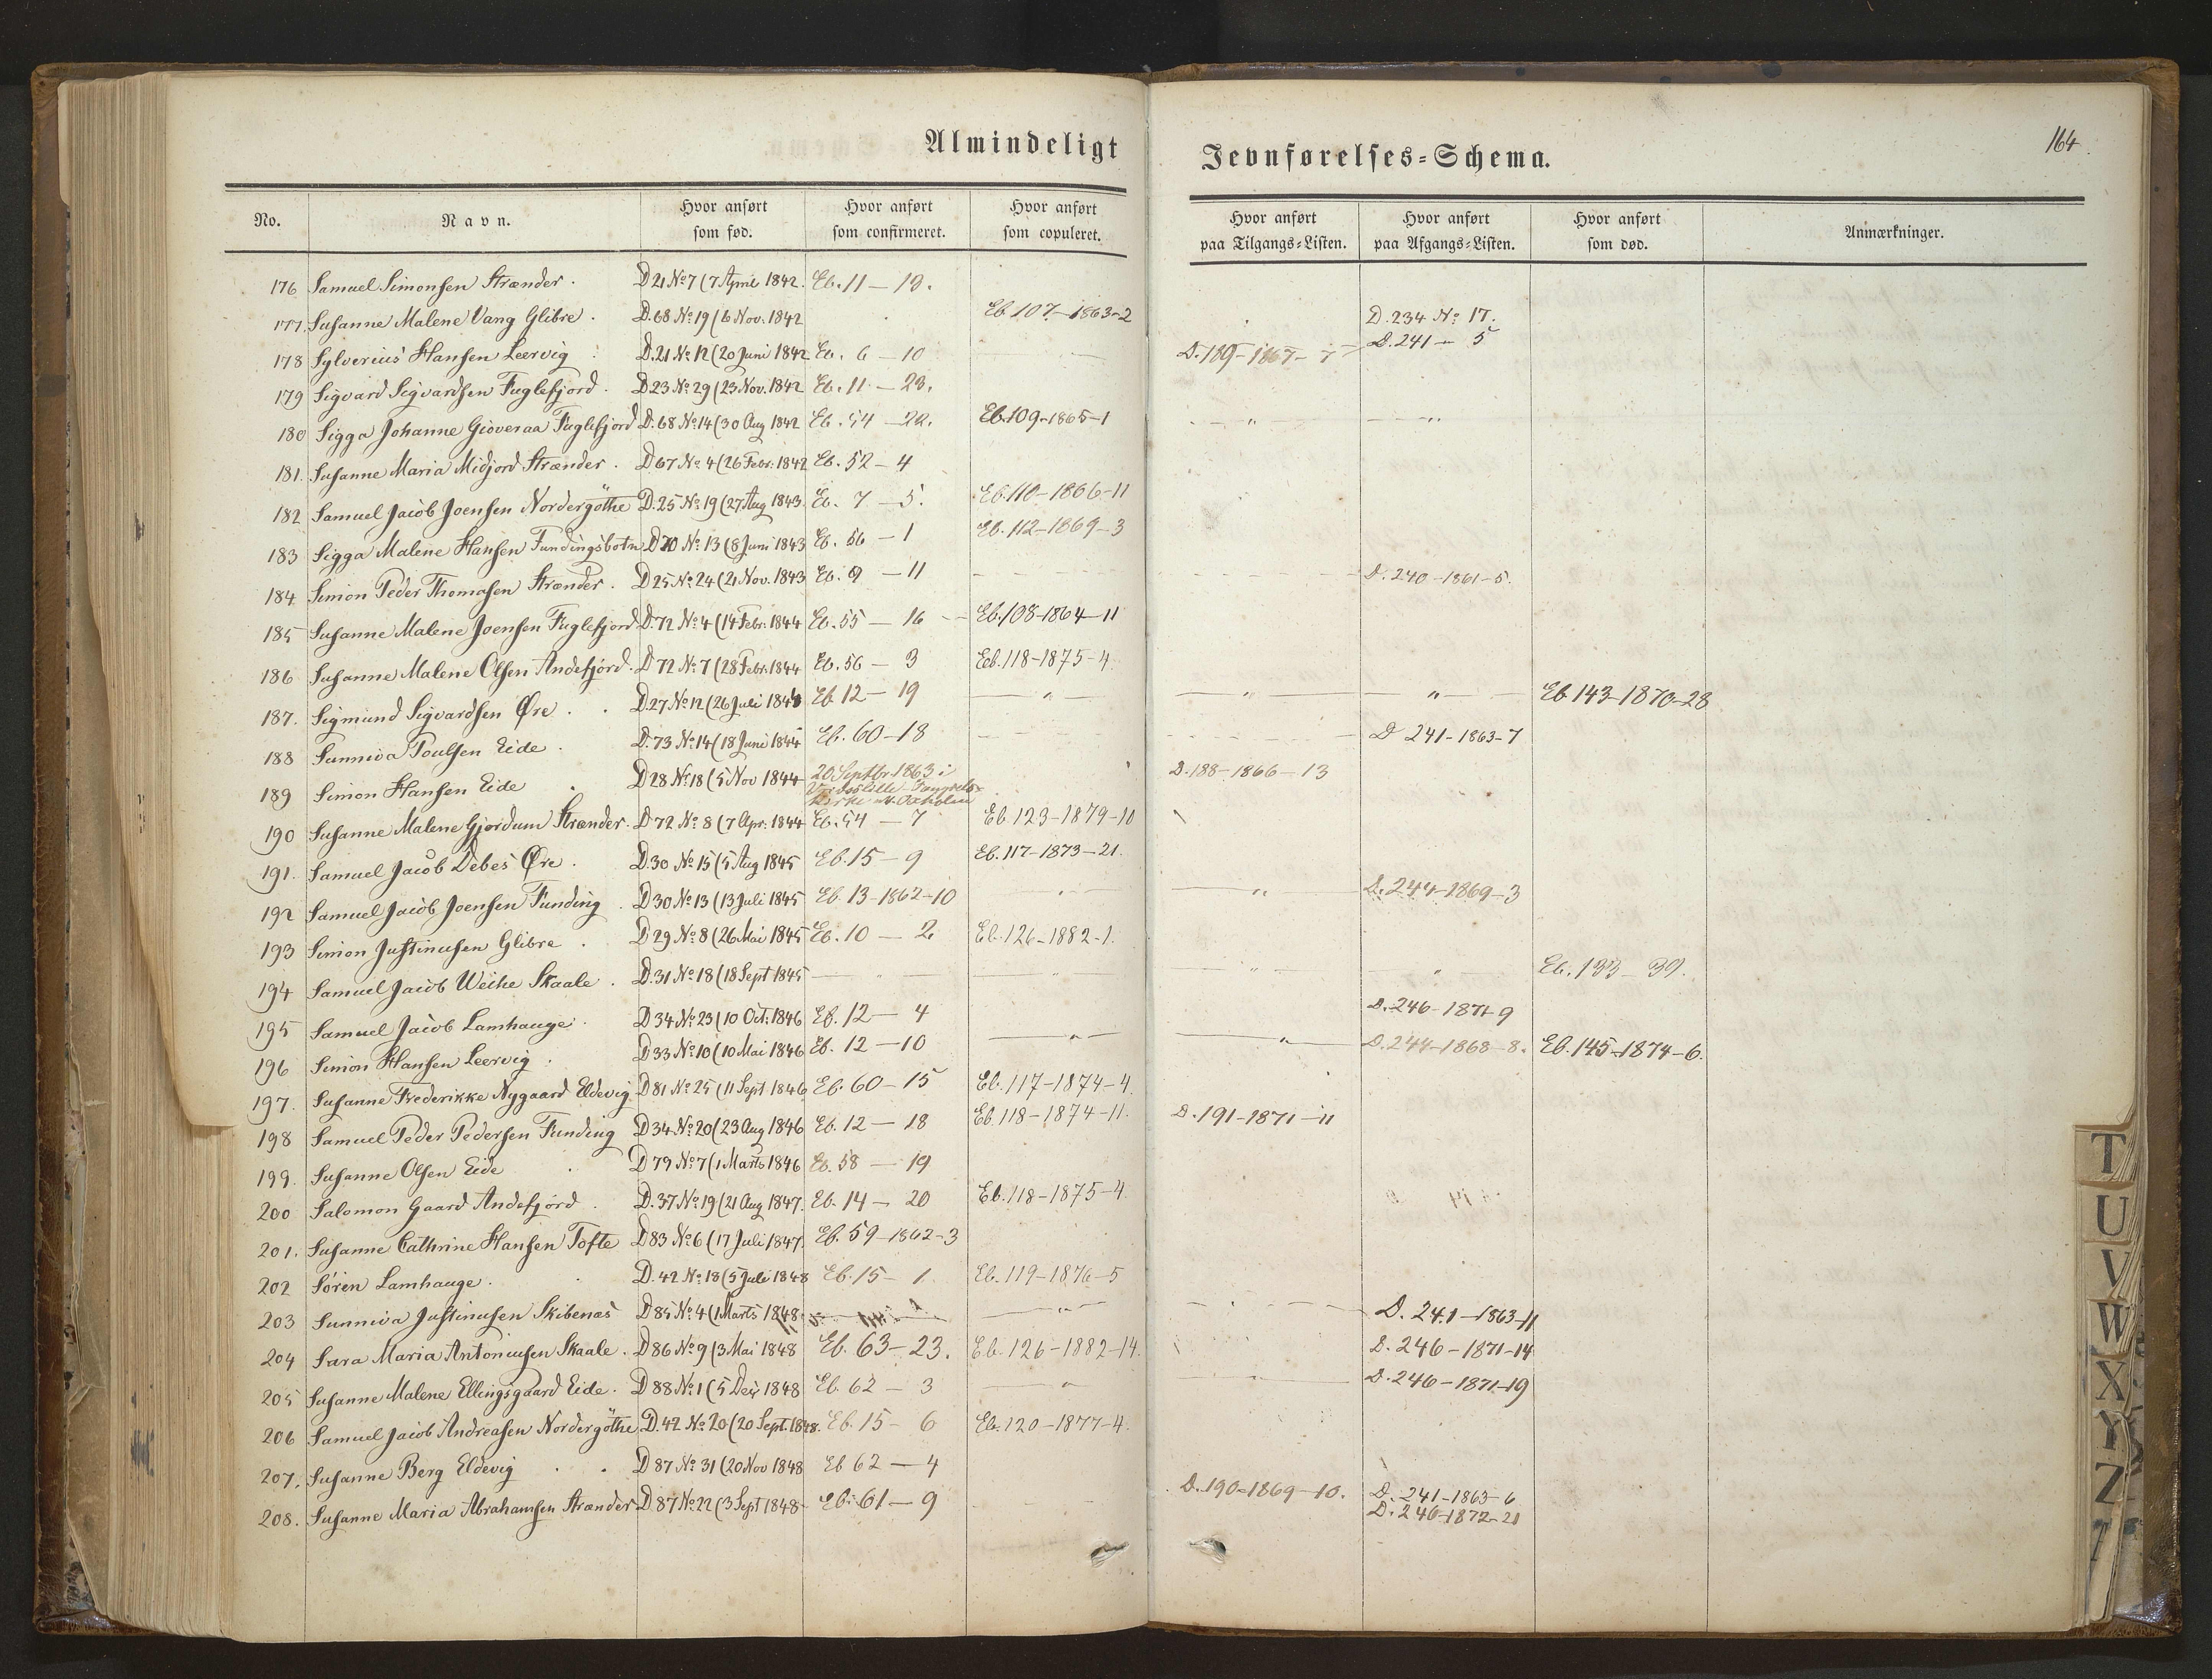 Almindeligt Jevnførelses=Schema.
164.
No. Navn. Hvor anført som fød. Hvor anført som confirmeret. Hvor anført som copuleret. Hvor anført paa Tilgangs=Listen. Hvor anført paa Afgangs=Listen. Hvor anført som død. Anmærkninger.
176 Samuel Simonsen Strænder. D 21 No 7 (7 April 1842. Eb. 11 — 13.
177. Susanne Malene Vang Glibre. D. 68 No 19 (6 Nov. 1842 Eb. 107—1863-2 D. 234 No 17.
178 Sylverius Hansen Leervig D. 21 No 12 (20 Juni 1842 Eb. 6 — 10 D. 189-1867-7 D. 241 — 5
179 Sigvard Sigvardsen Fuglefjord. D 23 No 29 (23 Nov. 1842 Eb. 11 — 23.
180 Sigga Johanne Gioveraa Fuglefjord D. 68 No 14 (30 Aug 1842 Eb. 54 — 22. Eb. 109-1865-1 — „ — — „
181. Susanne Maria Midjord Strænder. D 67 No 4 (26 Febr: 1842 Eb. 52 — 4
182 Samuel Jacob Joensen Nordergöthe D. 25 No 19 (27 Aug 1843. Eb. 7 — 5. Eb. 110-1866-11
183 Sigga Malene Hansen Fundingsbotn D 70 No 13 (8 Juni 1843 Eb. 56 — 1 Eb. 112-1869-3
184 Simon Peder Thomasen Strænder. D 25 No 24 (21 Nov. 1843 Eb. 9 — 11 D. 240-1861-5.
185 Susanne Malene Joensen Fuglefjord D. 72 No 4 (14 Febr: 1844 Eb. 55 — 16 Eb. 108-1864-11
186 Susanne Malene Olsen Andefjord. D 72 No 7 (28 Febr. 1844 Eb. 56 — 3 Eb. 118-1875-4
187. Sigmund Sigvardsen Øre. D 27 No 12 (26 Juli 1844 Eb 12 — 19 — „ — — „ — — „ — Eb. 143-1870-28
188 Sunniva Poulsen Eide D. 73 No 14 (18 Juni 1844 Eb. 60-18 D 241-1863-7
189 Simon Hansen Eide D 28 No 18 (5 Nov 1844 20 Septbr. 1863 i
Kirke D. 188-1866-13
190 Susanne Malene Gjordum Strænder. D 72 No 8 (7 Apr: 1844 Eb. 54 — 7 Eb. 123-1879-10
191. Samuel Jacob Debes Øre. D. 30 No 15 (5 Aug 1845 Eb. 15 — 9 Eb. 117-1873-21.
192 Samuel Jacob Joensen Funding. D 30 No 13 (13 Juli 1845 Eb. 13-1862-10 — „ — — „ — D. 244-1869-3
193 Simon Justinusen Glibre. D 29 No 8 (26 Mai 1845 Eb. 10 — 2 Eb. 126-1882-1.
194 Samuel Jacob Weihe Skaale. D. 31 No 18 (18 Sept 1845 — „ „ „ „ Eb. 133 — 39.
195 Samuel Jacob Lamhauge. D 34 No 23 (10 Oct: 1846 Eb. 12 — 4 D. 246-1871-9
196 Simon Hansen Leervig. D 33 No 10 (10 Mai 1846 Eb. 12 — 10 — „ — — „ — D. 244-1868-8. Eb. 145-1874-6.
197. Susanne Frederikke Nygaard Eldevig D 81 No 25 (11 Sept 1846 Eb. 60 — 15 Eb. 117-1874-4.
198 Samuel Peder Pedersen Funding D 34 No 20 (23 Aug 1846 Eb. 12 — 18 Eb. 118-1874-11. D. 191-1871-11
199. Susanne Olsen Eide D 79 No 7 (1 Marts 1846 Eb. 58 — 19
200 Salomon Gaard Andefjord. D. 37 No 19 (21 Aug 1847. Eb. 14 — 20 Eb. 118-1875-4.
201. Susanne Cathrine Hansen Tofte D 83 No 6 (17 Juli 1847. Eb. 59-1862-3
202 Sören Lamhauge. D. 42 No 18 (5 Juli 1848 Eb. 15 — 1 Eb. 119-1876-5
203 Sunniva Justinusen Skibenæs D 85 No 4 (1 Marts 1848. — „ — D. 241-1863-11
204 Sara Maria Antoniusen Skaale. D 86 No 9 (3 Mai 1848 Eb. 63-23. Eb. 126-1882-14. D. 246-1871-14
205 Susanne Malene Ellingsgaard Eide. D 88 No 1 (5 Dec: 1848 Eb. 62 — 3 — „ — D. 246-1871-19
206 Samuel Jacob Andreasen Nordergöthe D. 42 No 20 (20 Sept. 1848. Eb. 15 — 6 Eb. 120-1877-4.
207. Susanne Berg Eldevig D 87 No 31 (20 Nov 1848 Eb 62 — 4
208. Susanne Maria Abrahamsen Strænder D 87 No 22 (3 Sept 1848 Eb. 61 — 9 D. 190-1869-10. D. 241-1863-6
D. 246-1872-21
T
U
V
W
X
Y
Z